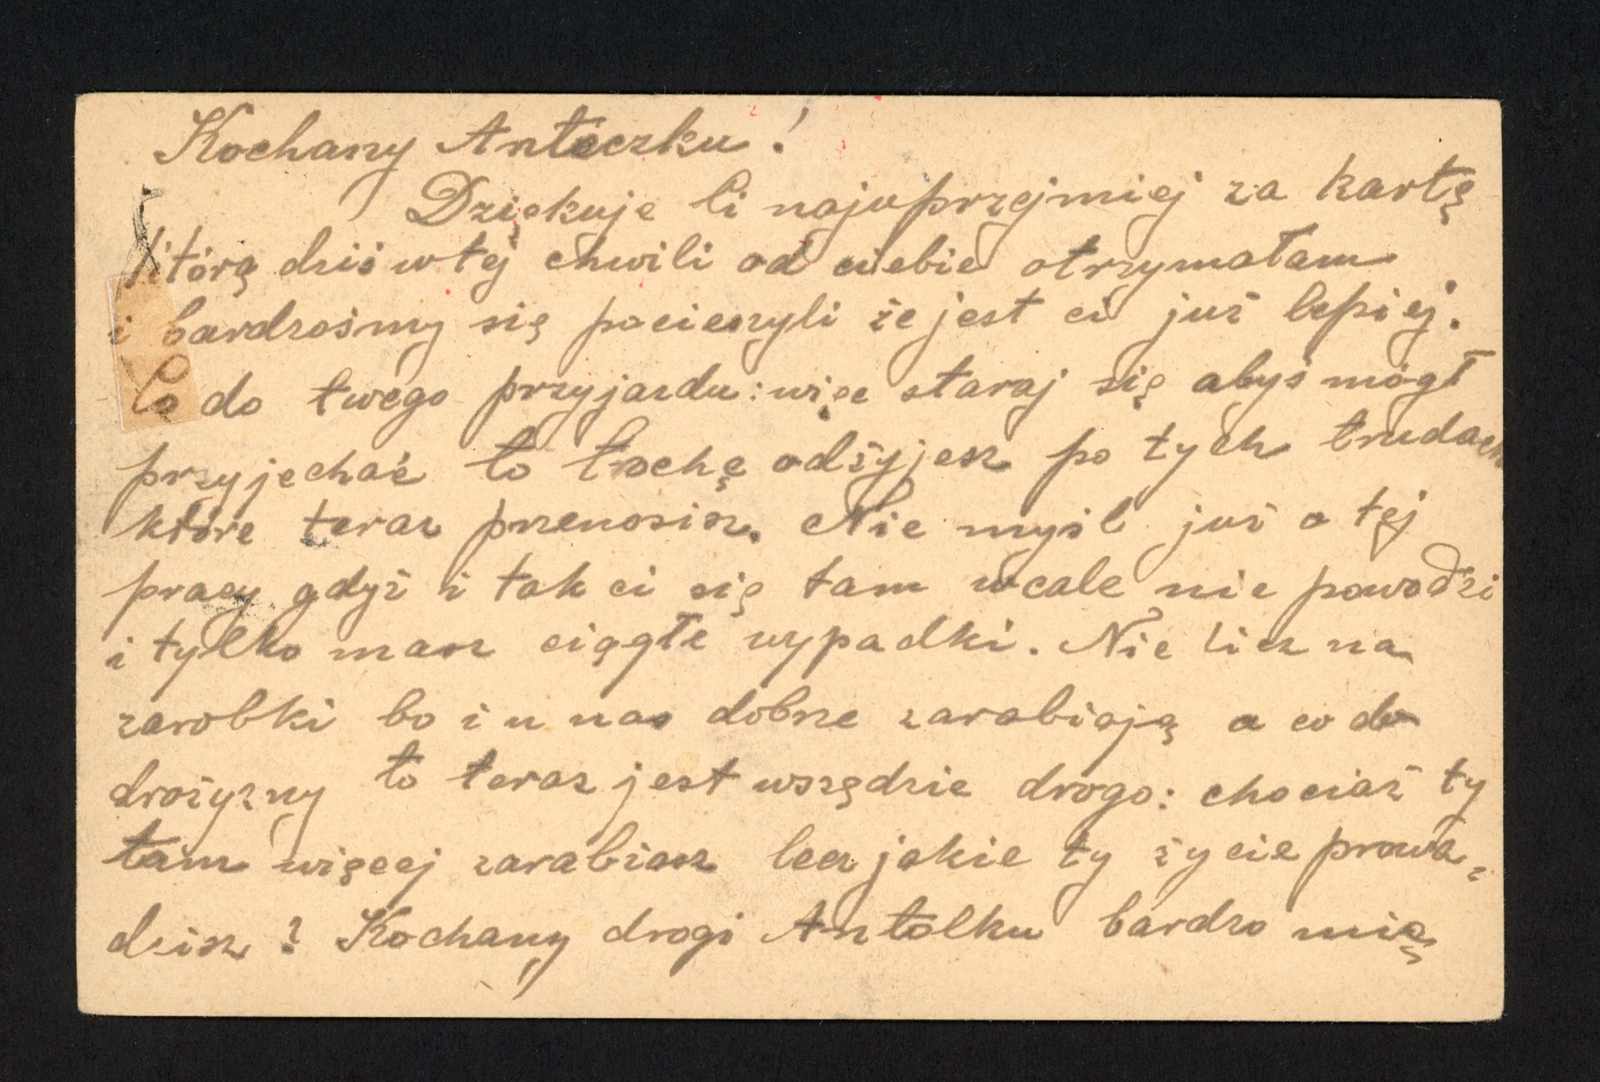 Kochany Antoczku!
Dziękuje Ci najuprzejmiej za kartę
którą dziś w tej chwili od ciebie otrzymałam
i bardzośmy się pocieszyli że jest ci już lepiej.
Co do twego przyjazdu: więc staraj się abyś mógł
przyjechać to trochę odżyjesz po tych trudach
które teraz przenosisz. Nie myśl już o tęj
pracy gdyż i tak ci się tam wcale nie powodzi
i tylko masz ciągłe wypadki. Nie licz na
zarobki bo i u nas dobrze zarabiają a co do
drożyzny to teraz jest wszędzie drogo: chociaż ty
tam więcej zarabiasz lecz jakie ty życie prowa-
dzisz? Kochany drogi Antolku bardzo mię